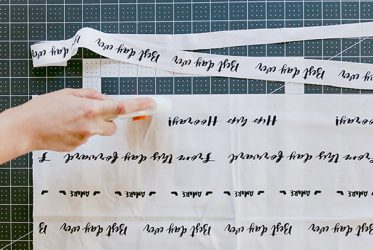 Best day ever Best day ever
Best day ever Best day ever Best day ever
Hooray! Hip hip Hooray!
From this day forward From this day forward F
AMORE AMORE AMORE AMORE AMORE AMORE
B Best day ever Best day ever Best day ever Best day ever